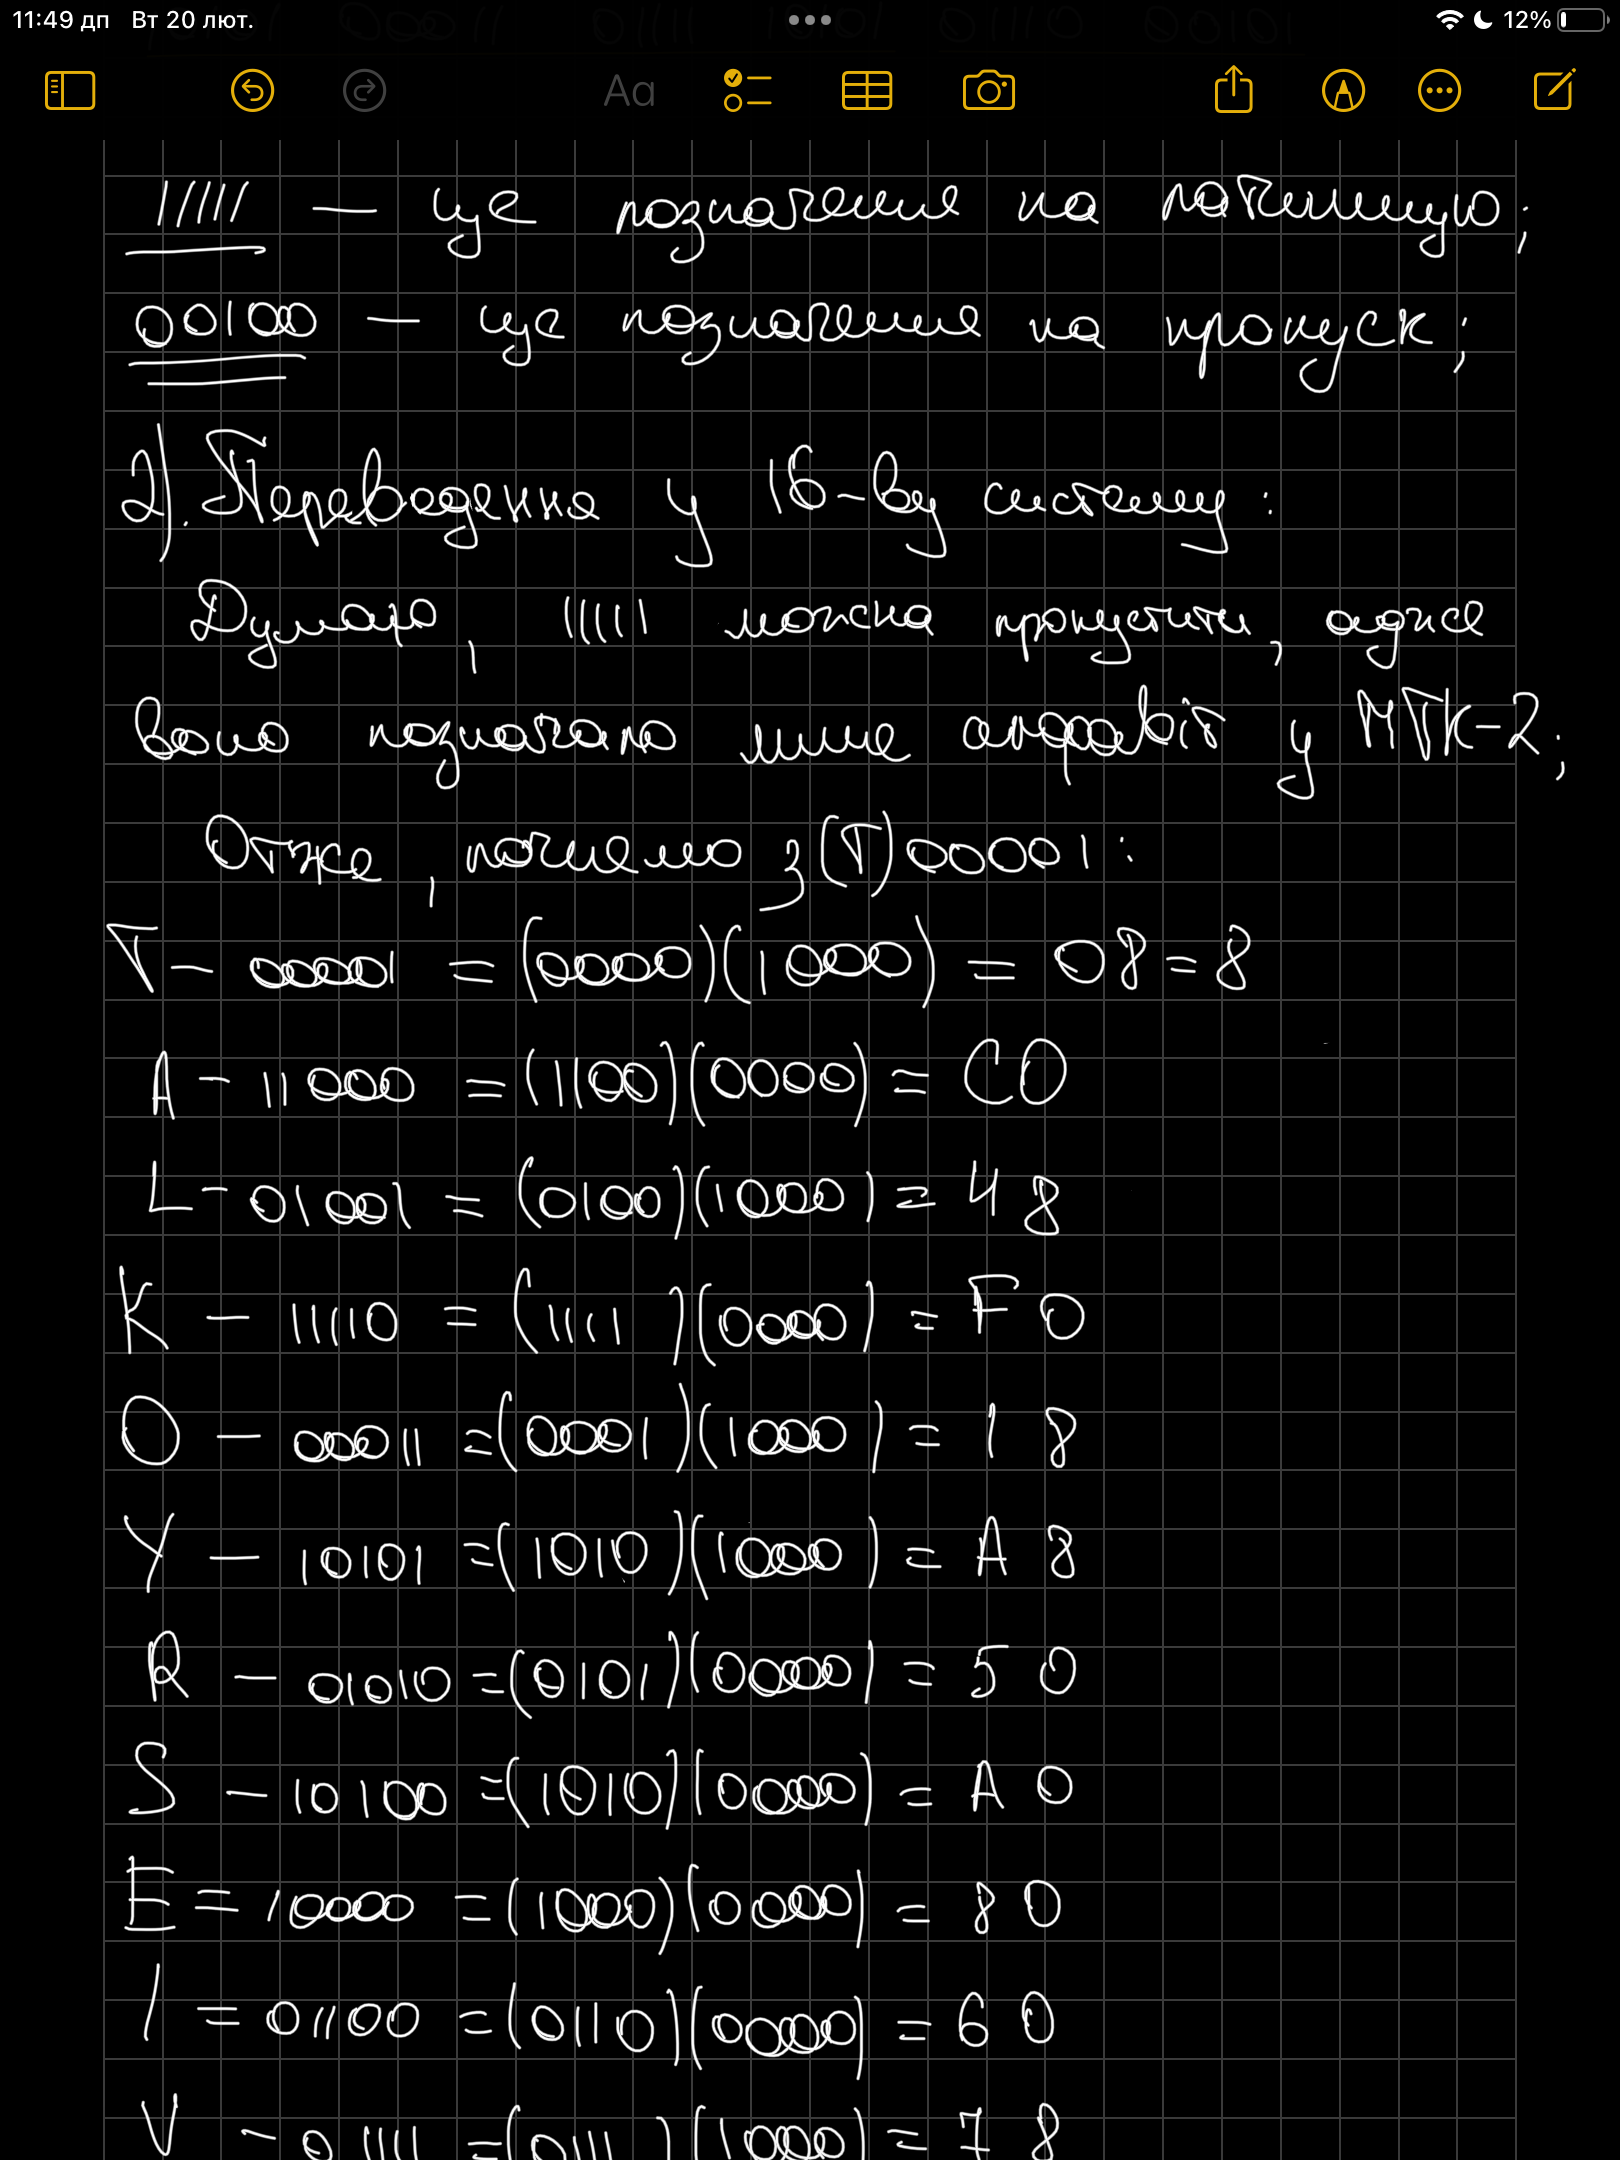 11:49 дп Вт 20 лют. 12%
Aa
11111 — це позначення на латиницю;
00100 — це позначення на пропуск;
2). Переведення у 16-ву систему:
Думаю, 11111 можна пропустити, адже
воно позначало лише алфавіт у МТК-2;
Отже, почнемо з (Т) 00001:
T - 00001 = (0000)(1000) = 08 = 8
A - 11000 = (1100)(0000) = C0
L - 01001 = (0100)(1000) = 48
K - 11110 = (1111)(0000) = F0
O - 00011 = (0001)(1000) = 18
Y - 10101 = (1010)(1000) = A8
R - 01010 = (0101)(0000) = 50
S - 10100 = (1010)(0000) = A0
E = 10000 = (1000)(0000) = 80
I = 01100 = (0110)(0000) = 60
V - 01111 = (0111)(1000) = 78